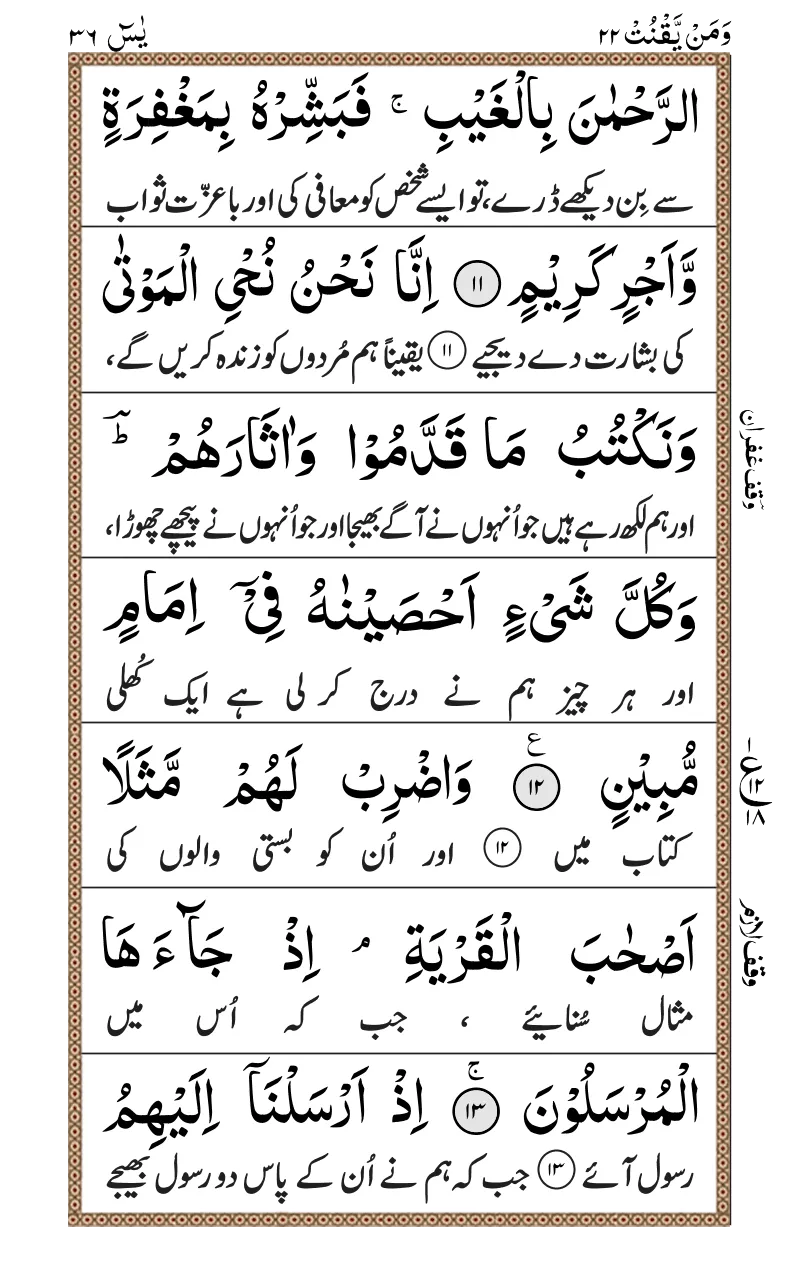 وَمَنْ يَّقْنُتْ ٢٢
يٰسٓ ٣٦
الرَّحْمٰنَ بِالْغَيْبِ ۚ فَبَشِّرْهُ بِمَغْفِرَةٍ
سے بِن دیکھے ڈرے، تو ایسے شخص کو معافی کی اور باعزّت ثواب
وَّاَجْرٍ كَرِيْمٍ ١١ اِنَّا نَحْنُ نُحْيِ الْمَوْتٰى
کی بشارت دے دیجیے ١١ یقیناً ہم مُردوں کو زندہ کریں گے،
وَنَكْتُبُ مَا قَدَّمُوْا وَاٰثَارَهُمْ ؔ ؕ
اور ہم لکھ رہے ہیں جو اُنہوں نے آگے بھیجا اور جو اُنہوں نے پیچھے چھوڑا،
وقف غفران
وَكُلَّ شَيْءٍ اَحْصَيْنٰهُ فِيْٓ اِمَامٍ
اور ہر چیز ہم نے درج کر لی ہے ایک کُھلی
مُّبِيْنٍ ١٢ ع وَاضْرِبْ لَهُمْ مَّثَلًا
کتاب میں ١٢ اور اُن کو بستی والوں کی
١ ع ١٢ ١٨
اَصْحٰبَ الْقَرْيَةِ ۘ اِذْ جَآءَهَا
مثال سُنائیے ، جب کہ اُس میں
وقف لازم
الْمُرْسَلُوْنَ ١٣ ۚ اِذْ اَرْسَلْنَآ اِلَيْهِمُ
رسول آئے ١٣ جب کہ ہم نے اُن کے پاس دو رسول بھیجے